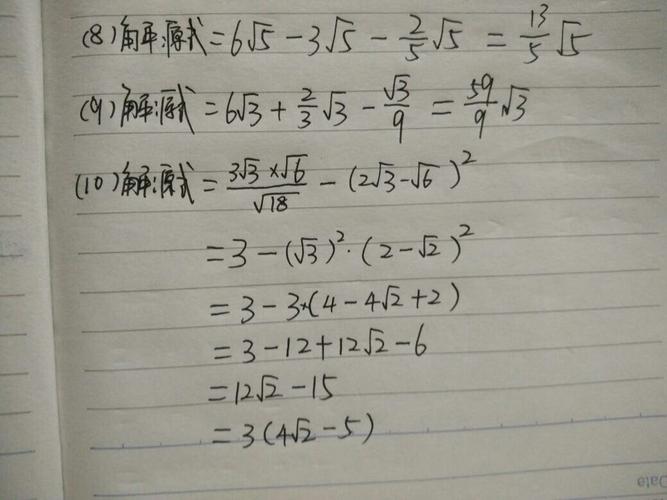 (8)解:原式=6√5-3√5-2/5√5=13/5√5
(9)解:原式=6√3+2/3√3-√3/9=59/9√3
(10)解:原式=3√3×√6/√18-(2√3-√6)²
=3-(√3)²·(2-√2)²
=3-3×(4-4√2+2)
=3-12+12√2-6
=12√2-15
=3(4√2-5)
Date